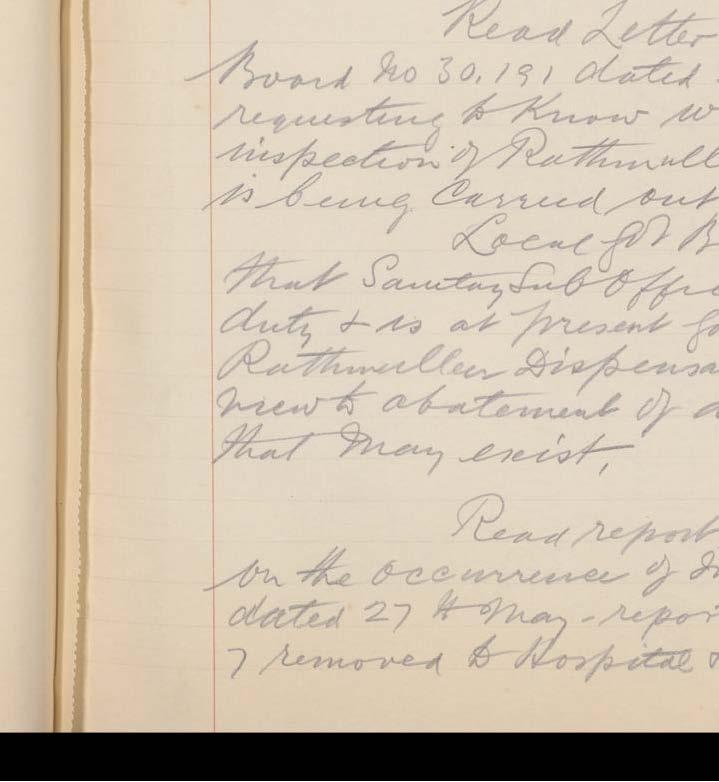 Read Letter
Board No 30,191 dated
requesting to Know w
inspection of Rathmull
is being Carried out
Local Gov B
that Sanitary Sub Offic
duty & is at present go
Rathmullen Dispensa
view to abatement of a
that May exist,
Read report
on the occurrence of In
dated 27th May - repor
7 removed to Hospital &